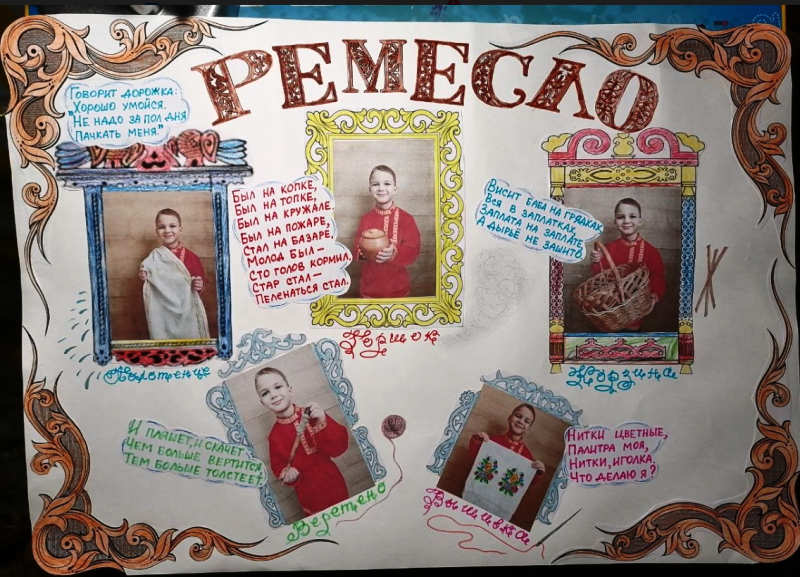 РЕМЕСЛО
Говорит дорожка:
"Хорошо умойся.
Не надо за пол дня
Пачкать меня."
Полотенце
Был на копке,
Был на топке,
Был на кружале.
Был на пожаре,
Стал на базаре,
Молод был –
Сто голов кормил,
Стар стал –
Пеленаться стал.
Горшок
Висит баба на грядках
Вся в заплатках.
Заплата на заплате,
А дырье не зашито.
Корзина
И пляшет, и скачет
Чем больше вертится
Тем больше толстеет
Веретено
Нитки цветные,
Палитра моя,
Нитки, иголка.
Что делаю я?
Вышивка